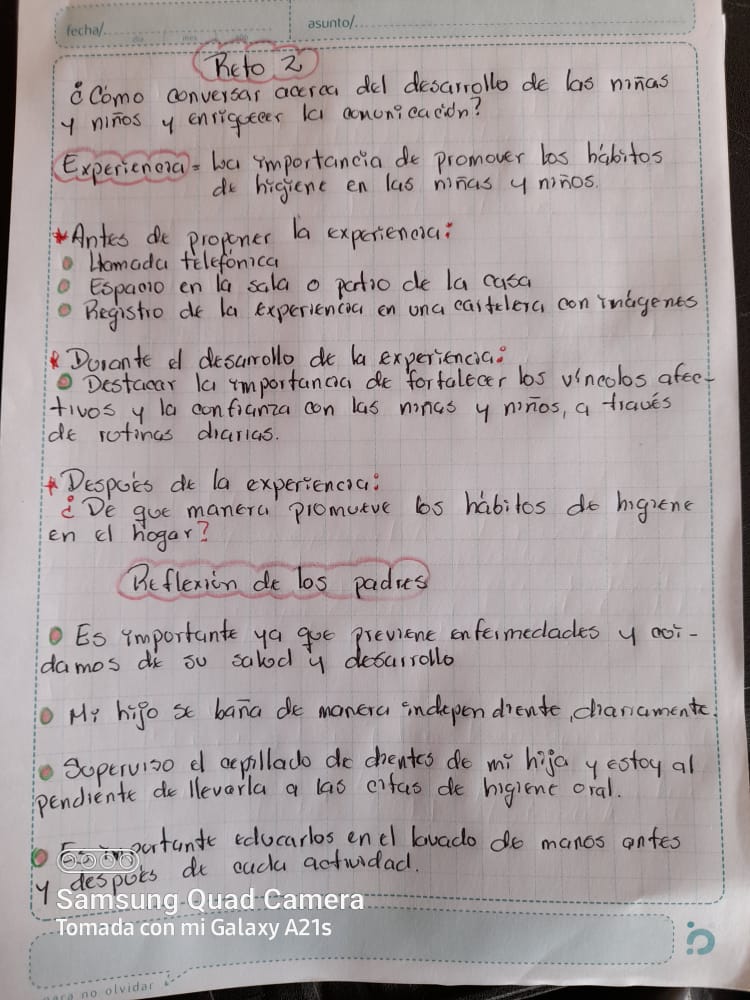 fecha/
asunto/
Reto 2
¿Cómo conversar acerca del desarrollo de las niñas
y niños y enriquecer la comunicación?
Experiencia = La importancia de promover los hábitos
de higiene en las niñas y niños.
* Antes de proponer la experiencia:
• Llamada telefónica
• Espacio en la sala o patio de la casa
• Registro de la experiencia en una cartelera con imágenes
* Durante el desarrollo de la experiencia:
• Destacar la importancia de fortalecer los vínculos afec-
tivos y la confianza con las niñas y niños, a través
de rutinas diarias.
* Después de la experiencia:
¿De que manera promueve los hábitos de higiene
en el hogar?
Reflexión de los padres
• Es importante ya que previene enfermedades y cui-
damos de su salud y desarrollo
• Mi hijo se baña de manera independiente, diariamente.
• Superviso el cepillado de dientes de mi hija y estoy al
pendiente de llevarla a las citas de higiene oral.
• Es importante educarlos en el lavado de manos antes
y después de cada actividad.
Samsung Quad Camera
Tomada con mi Galaxy A21s
para no olvidar